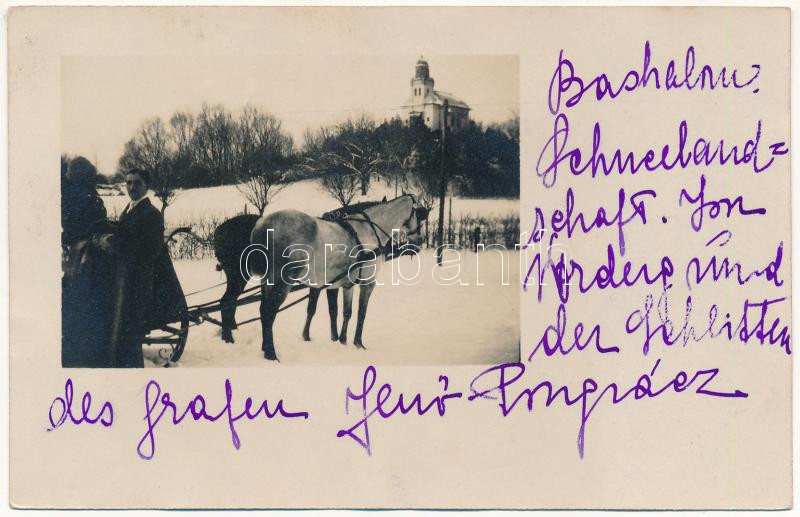 Bashalmu:
Schneeland=
schaft. Im
Vordergrund
der Schlitten
des Grafen Jenö Pongrácz
darabanth